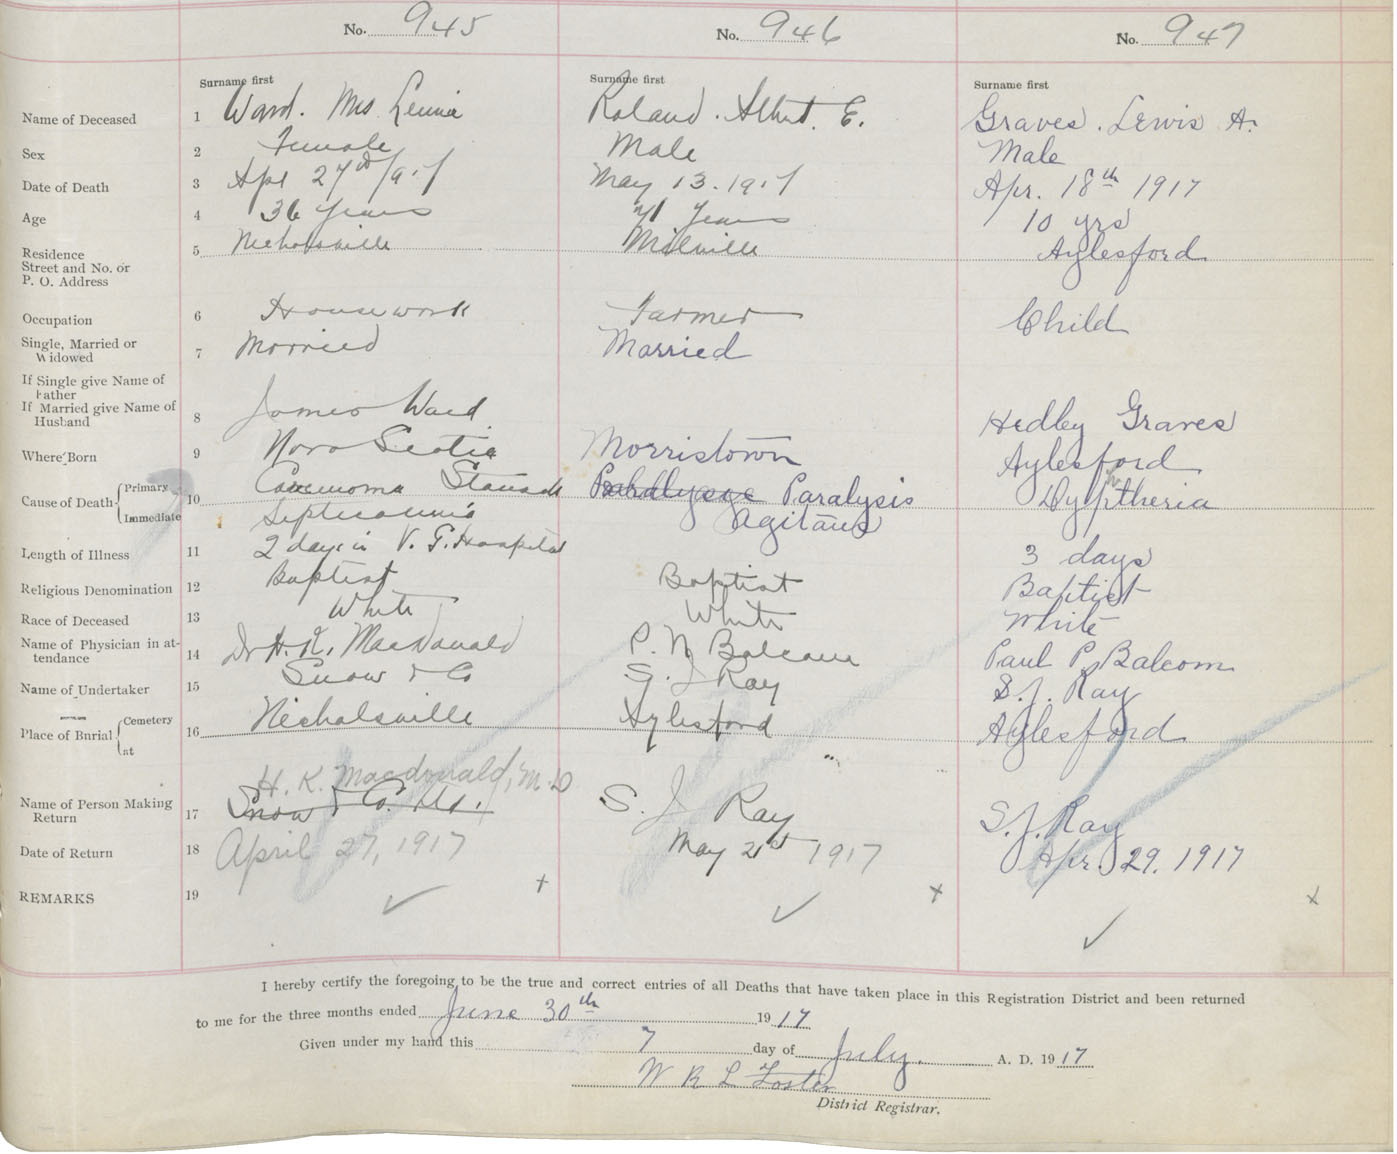 No. 945 No. 946 No. 947
Surname first Surname first Surname first
Name of Deceased 1 Ward. Mrs Roland. Albert. E. Graves. Lewis A.
Sex 2 Female Male Male
Date of Death 3 Apl 27th/917 May 13. 1917 Apr. 18th 1917
Age 4 36 years 71 years 10 yrs
Residence
Street and No. or
P. O. Address
5 Nicholsville Milville Aylesford
Occupation 6 Housework Farmer Child
Single, Married or
Widowed
7 Married Married
If Single give Name of
Father
If Married give Name of
Husband
8 James Ward Hedley Graves
Where Born 9 Nova Scotia Morristown Aylesford
Cause of Death Primary
Immediate
10 Carcinoma Stomach Paralysis Dyptheria
Septicaemia Agitans
Length of Illness 11 2 days in V. G. Hospital 3 days
Religious Denomination 12 Baptist Baptist Baptist
Race of Deceased 13 White White White
Name of Physician in at-
tendance
14 Dr H. K. MacDonald P. N Balcom Paul P. Balcom
Name of Undertaker 15 Snow & Co S. J Ray S. J. Ray
Place of Bnrial Cemetery
nt
16 Nicholsville Aylesford Aylesford
H. K. Macdonald, M.D
Name of Person Making
Return
17 Snow & Co. Ltd. S. J Ray S. J. Ray
Date of Return 18 April 27, 1917 May 21st 1917 Apr. 29. 1917
REMARKS 19
I hereby certify the foregoing to be the true and correct entries of all Deaths that have taken place in this Registration District and been returned
to me for the three months ended June 30th 1917
Given under my hand this 7 day of July. A. D. 1917
W R L Foster
District Registrar.